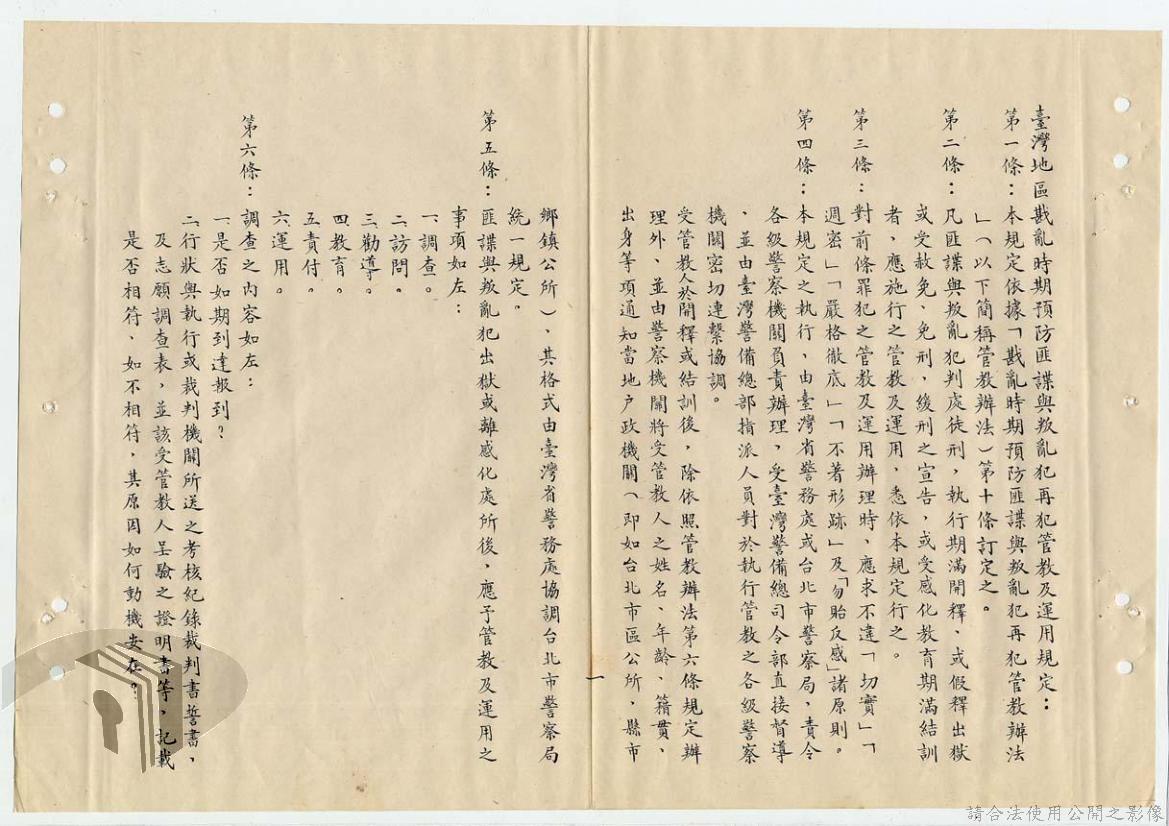 臺灣地區戡亂時期預防匪諜與叛亂犯再犯管教及運用規定：
第一條：本規定依據「戡亂時期預防匪諜與叛亂犯再犯管教辦法
」（以下簡稱管教辦法）第十條訂定之。
第二條：凡匪諜與叛亂犯判處徒刑，執行期滿開釋、或假釋出獄
或受赦免、免刑，緩刑之宣告，或受感化教育期滿結訓
者，應施行之管教及運用，悉依本規定行之。
第三條：對前條罪犯之管教及運用辦理時，應求不違「切實」「
週密」「嚴格徹底」「不著形跡」及「勿貽反感」諸原則。
第四條：本規定之執行，由臺灣省警務處或台北市警察局，責令
各級警察機關負責辦理，受臺灣警備總司令部直接督導
、並由臺灣警備總部指派人員對於執行管教之各級警察
機關密切連繫協調。
受管教人於開釋或結訓後，除依照管教辦法第六條規定辦
理外、並由警察機關將受管教人之姓名、年齡、籍貫、
出身等項通知當地戶政機關（即如台北市區公所，縣市
一
鄉鎮公所），其格式由臺灣省警務處協調台北市警察局
統一規定。
第五條：匪諜與叛亂犯出獄或離感化處所後，應予管教及運用之
事項如左：
一調查。
二訪問。
三勸導。
四教育。
五責付。
六運用。
第六條：調查之內容如左：
一是否如期到達報到？
二行狀與執行或裁判機關所送之考核紀錄裁判書誓書、
及志願調查表，並該受管教人呈驗之證明書等，記載
是否相符，如不相符，其原因如何動機安在？
請合法使用公開之影像